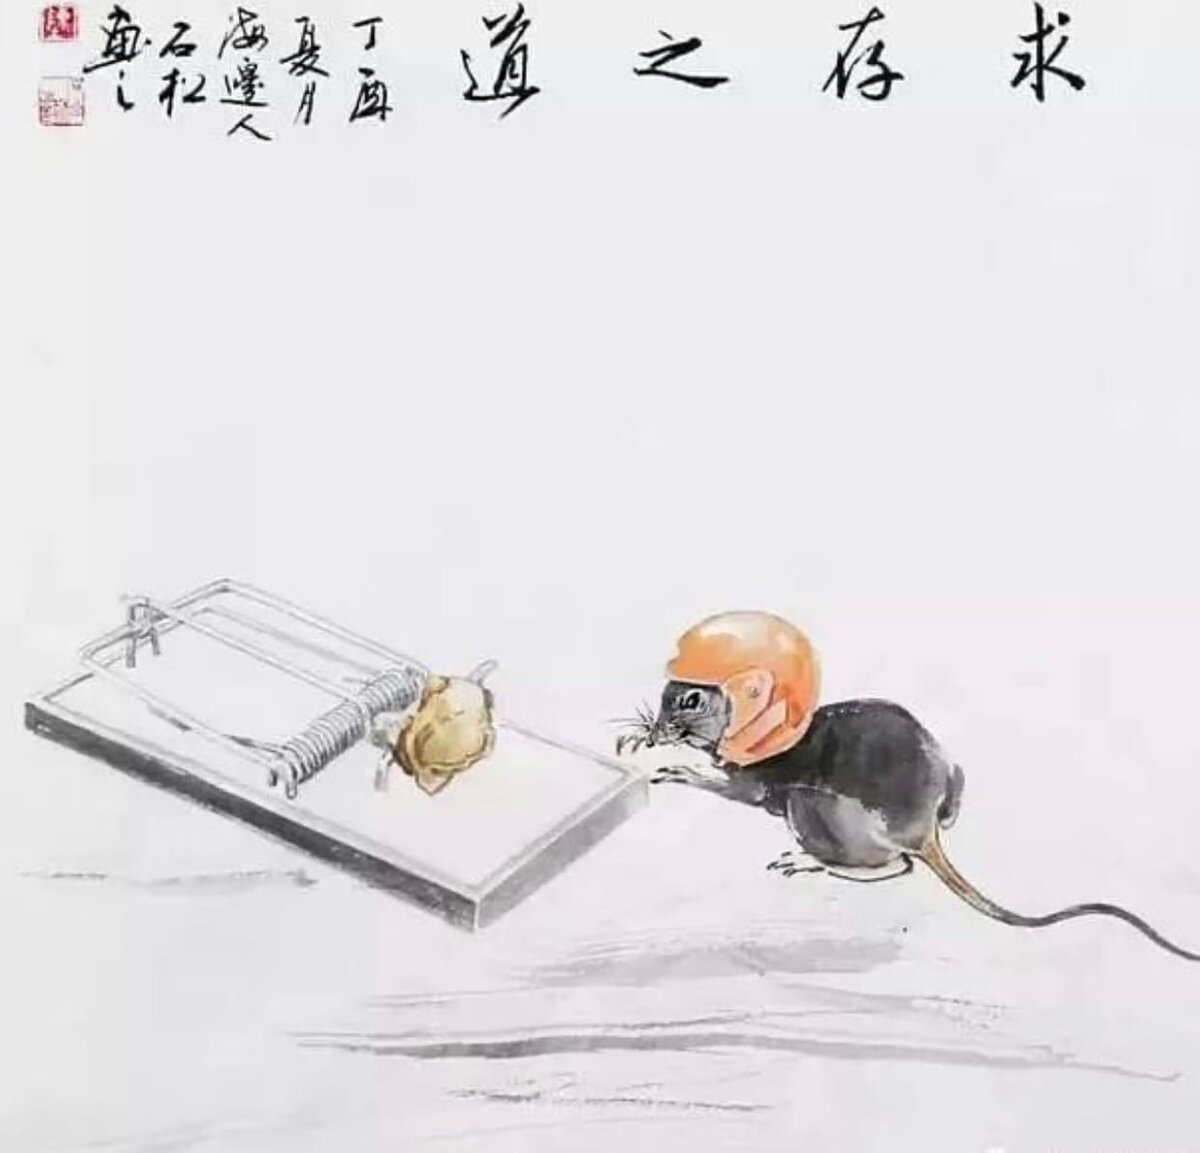 求存之道
丁酉
夏月
海邊人
石松
畫之